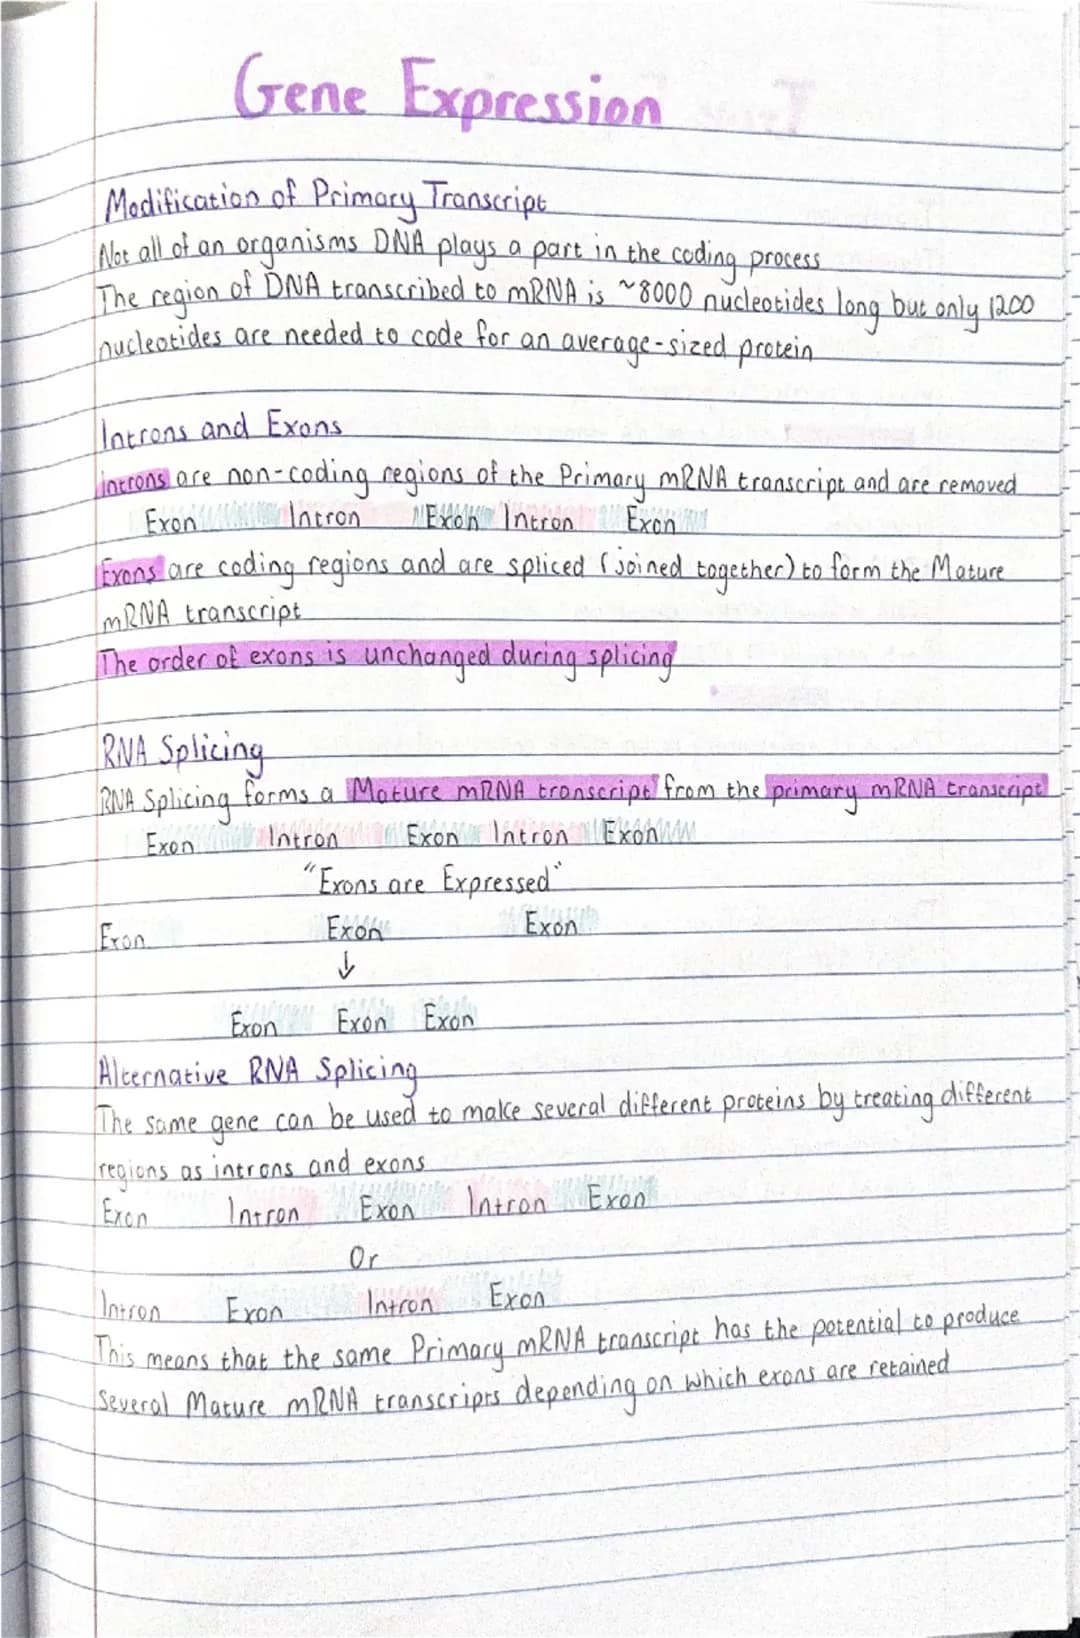 Gene Expression
Modification of Primary Transcript
Not all of an organisms DNA plays a part in the coding process
The region of DNA transcribed to mRNA is ~8000 nucleotides long but only 1200
nucleotides are needed to code for an average-sized protein
Introns and Exons
Introns are non-coding regions of the Primary mRNA transcript and are removed
Exon Intron Exon Intron Exon
Exons are coding regions and are spliced (joined together) to form the Mature
mRNA transcript
The order of exons is unchanged during splicing
RNA Splicing
RNA Splicing forms a Mature mRNA transcript from the primary mRNA transcript
Exon Intron Exon Intron Exon
"Exons are Expressed"
Exon Exon Exon
↓
Exon Exon Exon
Alternative RNA Splicing
The same gene can be used to make several different proteins by treating different
regions as introns and exons
Exon Intron Exon Intron Exon
Or
Intron Exon Intron Exon
This means that the same Primary mRNA transcript has the potential to produce
Several Mature mRNA transcripts depending on which exons are retained